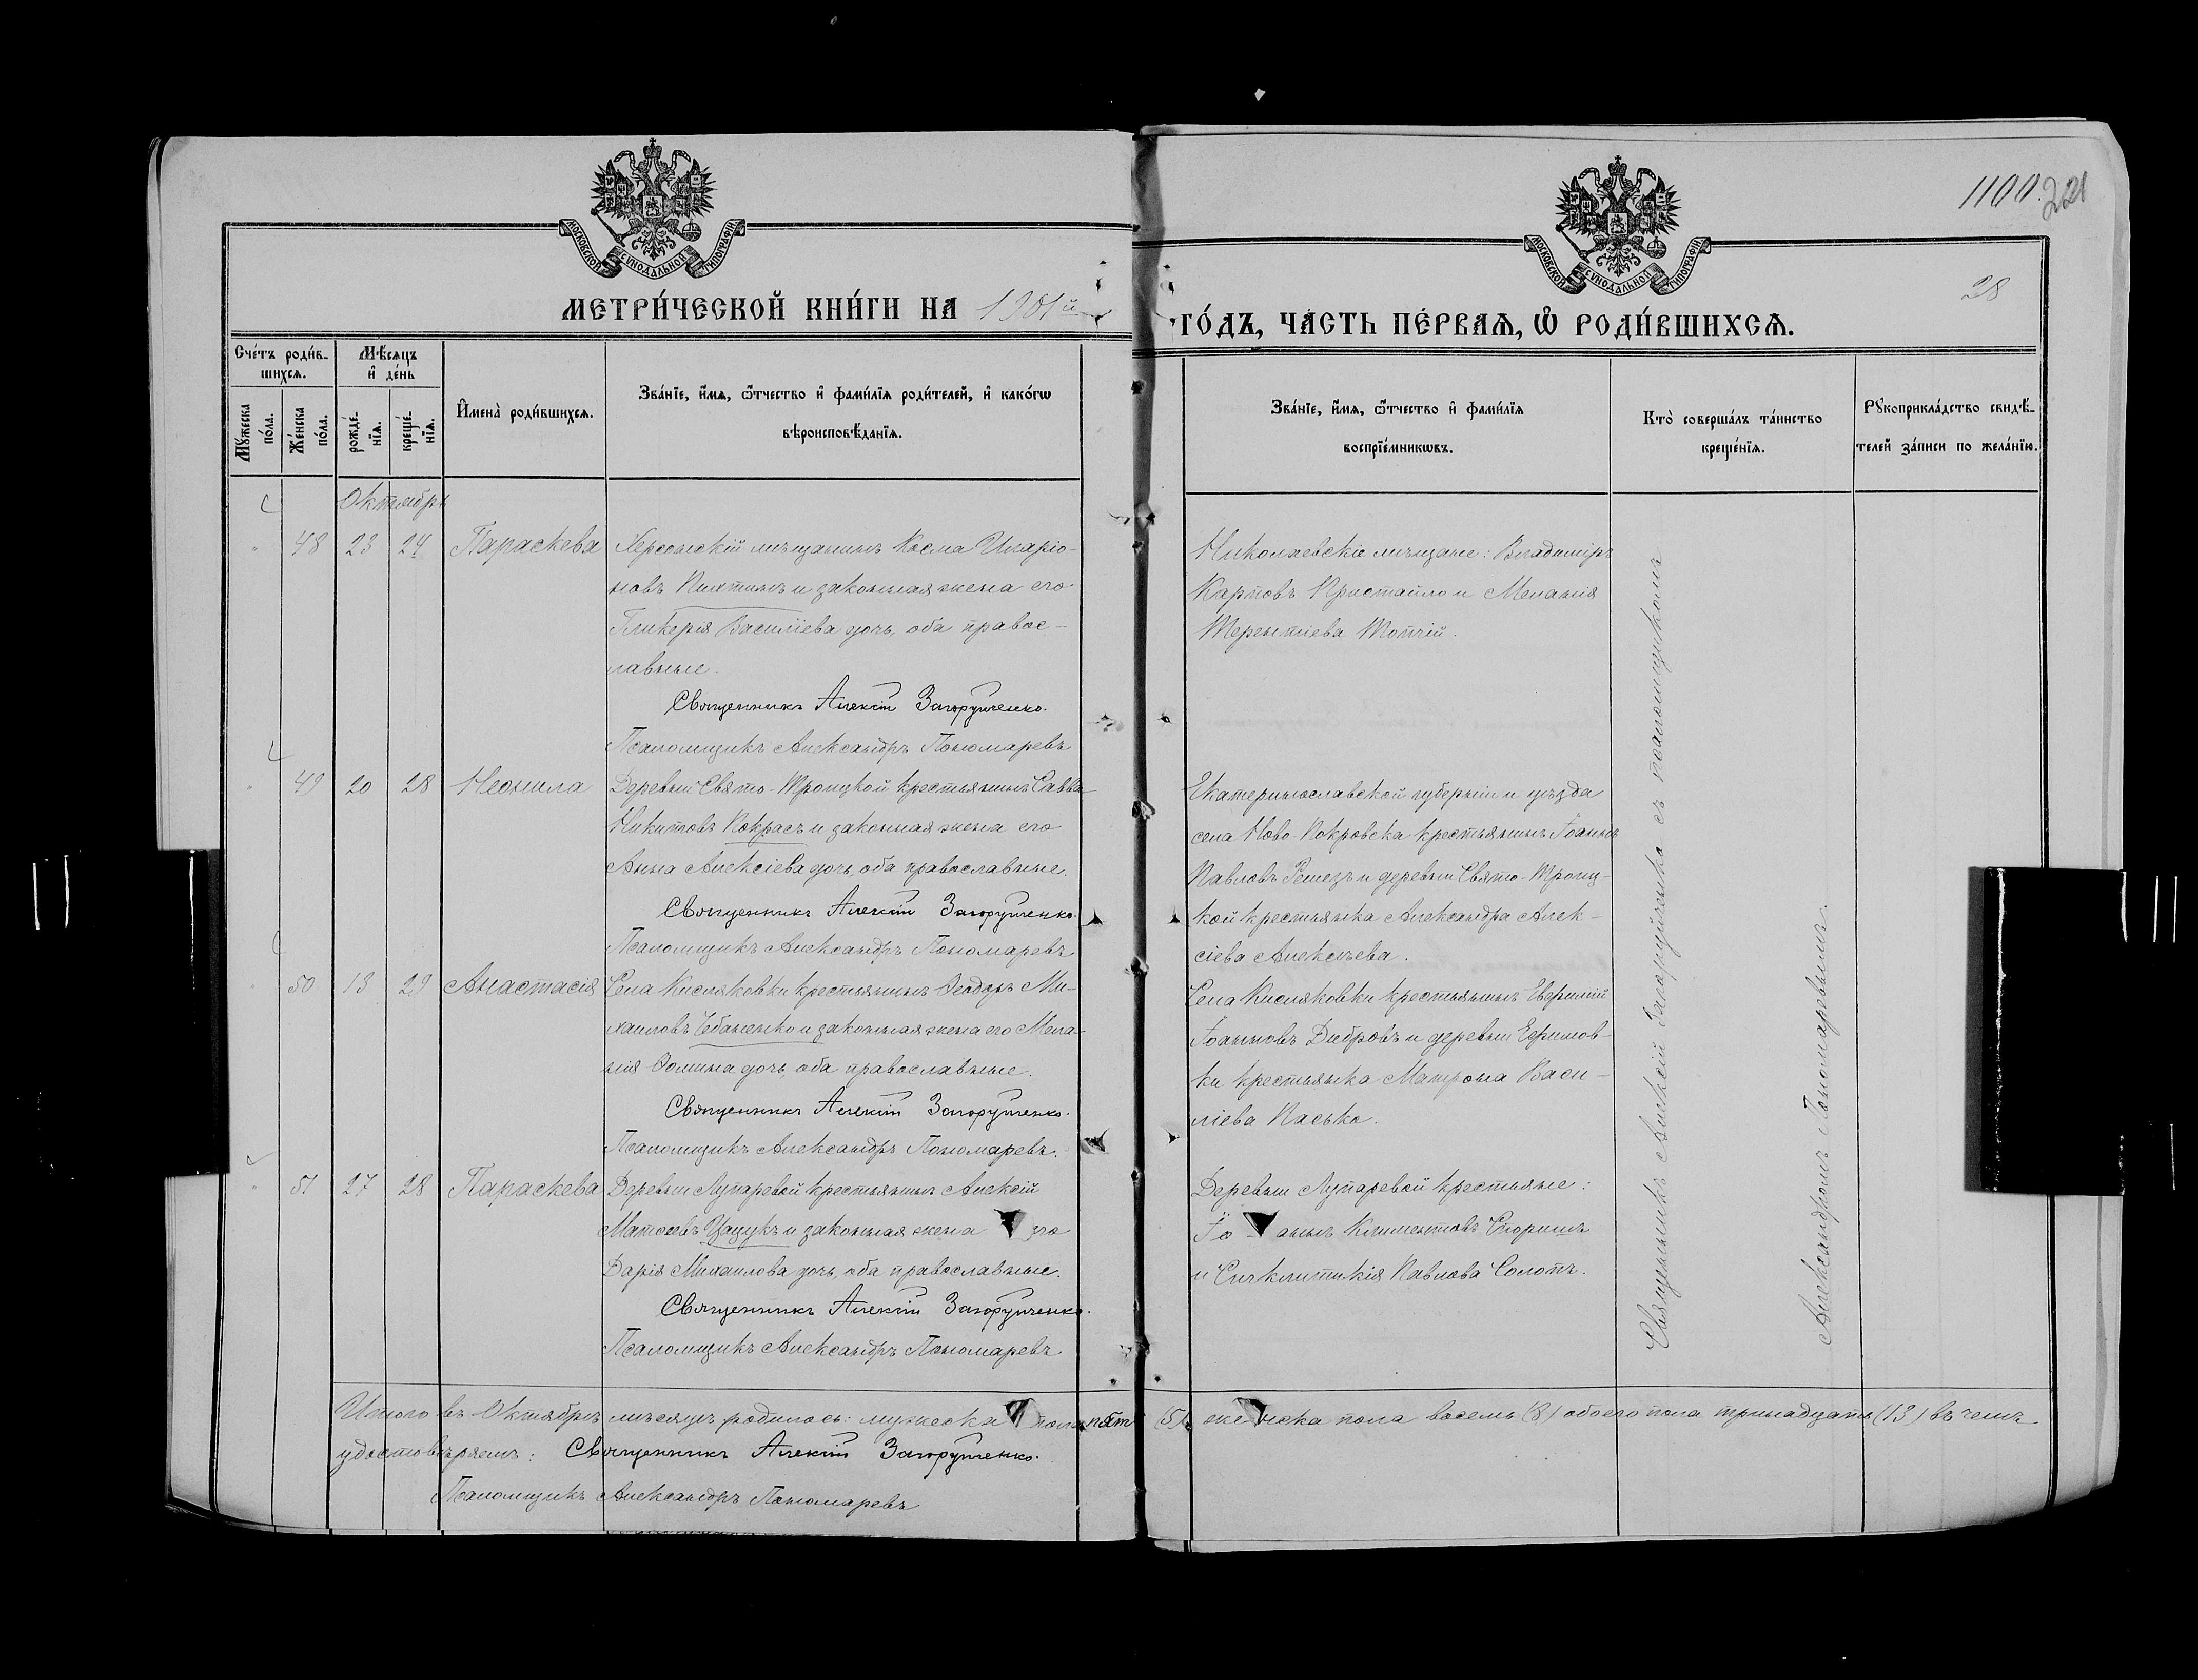 1100.
221
28
МОСКОВСКОЙ СѴНОДАЛЬНОЙ ТИПОГРАФІИ.
МОСКОВСКОЙ СѴНОДАЛЬНОЙ ТИПОГРАФІИ.
МЕТРИ́ЧЕСКОЙ КНИ́ГИ НА 1901й
ГО́ДЪ, ЧА́СТЬ ПЕ́РВАѦ, Ѡ҆ РОДИ́ВШИХСѦ.
Сче́тъ роди́в-
шихсѧ.
Мꙋ́жеска по́ла.
Же́нска по́ла.
Мѣ́сѧцъ
и҆ де́нь
рожде́-
нїѧ.
креще́-
нїѧ.
И҆мена̀ роди́вшихсѧ.
Зва́нїе, и҆́мѧ, ѻ҆́тчество и҆ фами́лїѧ роди́телей, и҆ како́гѡ
вѣроисповѣ́данїѧ.
Зва́нїе, и҆́мѧ, ѻ҆́тчество и҆ фами́лїѧ
воспрїе́мникѡвъ.
Кто̀ соверша́лъ та́инство
креще́нїѧ.
Рꙋкоприкла́дство свидѣ́-
телей за́писи по жела́нїю.
Октябрь
48 23 24 Параскева
Херсонскій мѣщанинъ Косма Иларіо-
новъ Пихтинъ и законная жена его
Гликерія Василіева дочь, оба правос-
лавные.
Священникъ Алексій Загоруйченко.
Псаломщикъ Александръ Пономаревъ
Николаевскіе мѣщане: Владиміръ
Карповъ Пристайло и Меланія
Терентіева Топчій.
49 20 28 Неонила
Деревни Свято-Троицкой крестьянинъ Савва
Никитовъ Покрасъ и законная жена его
Анна Алексіева дочь, оба православные.
Священникъ Алексій Загоруйченко.
Псаломщикъ Александръ Пономаревъ
Екатеринославской губерніи и уѣзда
села Ново-Покровска крестьянинъ Іоаннъ
Павловъ и деревни Свято-Троиц-
кой крестьянка Александра Алек-
сіева Алексѣева.
50 13 29 Анастасія
Села Кисляковки крестьянинъ Ѳеодоръ Ми-
хаиловъ Чебаненко и законная жена его Мела-
нія Ѳомина дочь, оба православные.
Священникъ Алексій Загоруйченко.
Псаломщикъ Александръ Пономаревъ.
Села Кисляковки крестьянинъ Евфимій
Іоанновъ Дибровъ и деревни Ефимов-
ки крестьянка Матрона Васи-
ліева Пасько.
51 27 28 Параскева
Деревни Лупаревой крестьянинъ Алексій
Матѳеевъ Цацукъ и законная жена его
Дарія Михаилова дочь, оба православные.
Священникъ Алексій Загоруйченко.
Псаломщикъ Александръ Пономаревъ
Деревни Лупаревой крестьяне:
Іо-аннъ Климентовъ
и Синклитикія Павлова Солопъ.
Священникъ Алексій Загоруйченко съ псаломщикомъ
Александромъ Пономаревымъ.
Итого въ Октябрѣ мѣсяцѣ родилось: мужеска пола пять (5), женска пола восемь (8) обоего пола тринадцать (13) въ чемъ
удостовѣряемъ: Священникъ Алексій Загоруйченко.
Псаломщикъ Александръ Пономаревъ